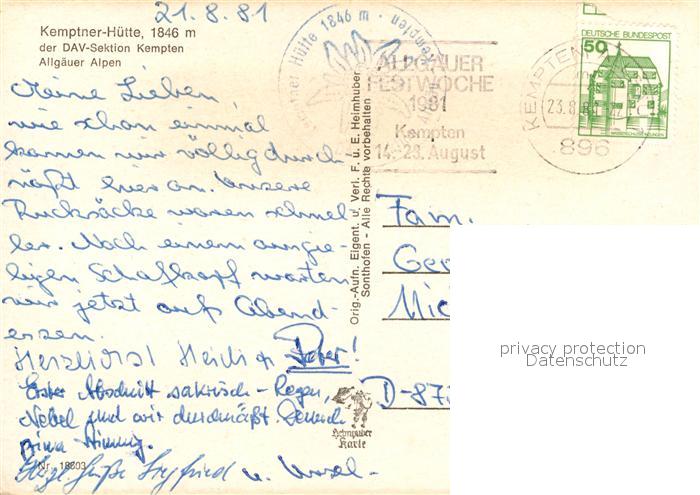 21.8.81
Kemptner-Hütte, 1846 m
der DAV-Sektion Kempten
Allgäuer Alpen
Meine Lieben,
wie schon einmal
kamen wir völlig durch-
näßt hier an. Unsere
Rucksäcke waren schnel-
ler. Nach einem ausgie-
bigen Schafkopf warten
wir jetzt aufs Abend-
essen.
Herzlichst Heidi &
Erster Abschnitt sakrisch - Regen,
Nebel und wir durchnäßt. Dennoch
prima Stimmung.
Herzl. Grüße Siegfried u.
Nr. 18803
Orig.-Aufn. Eigent. u. Verl. F. u. E. Heimhuber
Sonthofen - Alle Rechte vorbehalten
Heimhuber
Karte
Hütte 1846 m · Kempten
ALLGÄUER
FESTWOCHE
1981
Kempten
14.-23. August
KEMPTEN
23.8.
896
DEUTSCHE BUNDESPOST
50
Fam.
Geo
Mic
D-87
privacy protection
Datenschutz